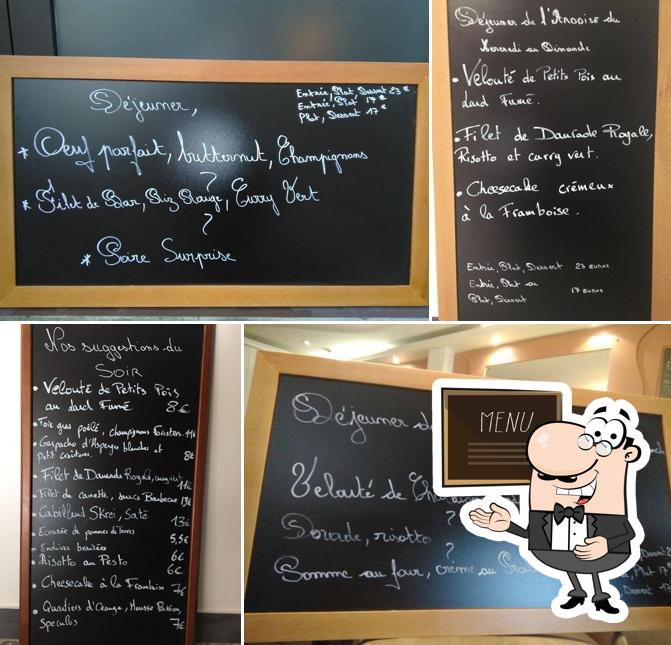 Déjeuner,
Entrée, Plat, Dessert 23 €
Entrée, Plat 17 €
Plat, Dessert 17 €
* Oeuf parfait, butternut, Champignons
?
* Filet de Bar, Riz Rouge, Curry Vert
?
* Poire Surprise
Déjeuner de l'Ardoise du
Mercredi au Dimanche
• Velouté de Petits Pois au
Lard Fumé.
• Filet de Daurade Royale,
Risotto et curry vert.
• Cheesecake crémeux
à la Framboise.
Entrée, Plat, Dessert 23 euros
Entrée, Plat ou
17 euros
Plat, Dessert
Nos suggestions du
SOIR
• Velouté de Petits Pois
au Lard Fumé 8€
• Foie gras poêlé, champignons Forestiers 11€
• Gaspacho d'Asperges blanches et
Petit croûtons. 8€
• Filet de Daurade Royale, curry vert
11€
• Filet de canette, sauce Barbecue 13€
• Cabillaud Skrei, Saté
13€
• Ecrasée de pommes de terres
5,5€
• Endives braisées
6€
• Risotto au Pesto
6€
• Cheesecake à la Framboise 7€
• Quartiers d'Orange, Mousse Passion,
Speculos 7€
Déjeuner
Velouté de
?
Dorade, risotto
?
Pomme au four, crème au
MENU